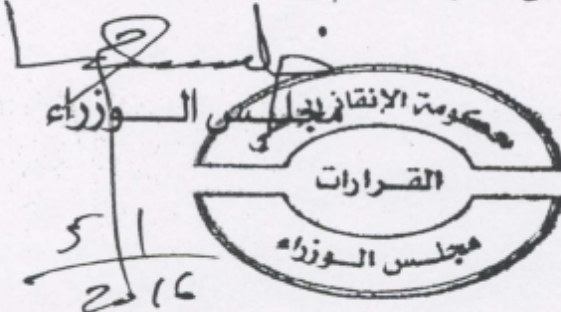 مجلس الوزراء
حكومة الإنقاذ
القرارات
مجلس الوزراء
5 1
2016